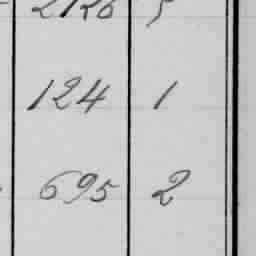 124 1
695 2